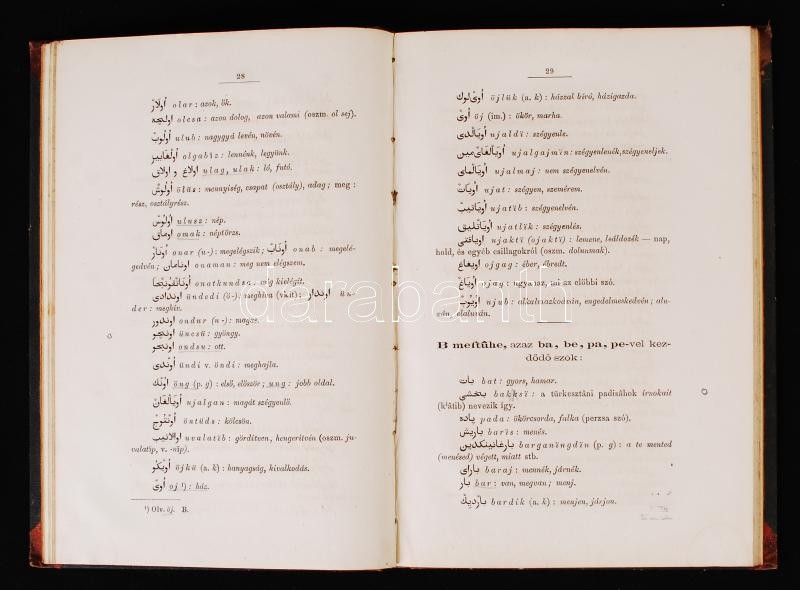 28
اولار olar: azok, ők.
اولچه olcsa: azon dolog, azon valami (oszm. ol sej).
اولوب ulub: nagygyá levén, növén.
اولغابیز olgabiz: lennénk, legyünk.
اولاغ و اولاق ulag, ulak: ló, futó.
اولوش ölüs: mennyiség, csapat (osztály), adag; meg:
rész, osztályrész.
اولوس ulusz: nép.
اوماق omak: néptörzs.
اونار onar (u-): megelégszik; اوناب onab: megelé-
gedvén; اونامان onaman: meg nem elégszem.
onatkundsa: míg kielégít.
اوندادی ündedi (ö-): meghíva (vkit); اوندار ün-
der: meghív.
اوندور ondur (u-): magas.
اونجو üncsü: gyöngy.
اونجو ondsu: ott.
اوندی ündi v. öndi: meghajla.
اونك öng (p. g): első, először; ung: jobb oldal.
اویالغان ujalgan: magát szégyenlő.
öntüds: kölcsön.
اوالاتیب uvalatib: gördítven, hengerítvén (oszm. ju-
valatip, v. -nip).
اویکو öjkü (a. k): hanyagság, kiválkodás.
اوی oj ¹): ház.
¹) Olv. öj. B.
29
اوی لوك öjlük (a. k): házzal biró, házigazda.
اوی öj (im.): ökör, marha.
اویالدی ujaldï: szégyenle.
اویالغای مین ujalgajmïn: szégyenlenék, szégyeneljek.
اویالمای ujalmaj: nem szégyenelvén.
اویات ujat: szégyen, szemérem.
اویاتیب ujatïb: szégyenelvén.
اویاتلیق ujatlïk: szégyenlés.
اویاقتی ujaktï (ojaktï): lemene, leáldozék — nap,
hold, és egyéb csillagokról (oszm. dolunmak).
اویغاغ ojgag: éber, ébredt.
اویاغ ojag: ugyanaz, mi az előbbi szó.
اویوب ujub: alkalmazkodván, engedelmeskedvén; alu-
ván, elaluván.
B meftûhe, azaz ba, be, pa, pe-vel kez-
dődő szók:
بات bat: gyors, hamar.
بخشی bakksï: a türkesztáni padisâhok írnokait
(kᶦâtib) nevezik így.
پاده pada: ökörcsorda, falka (perzsa szó).
باریش barïs: menés.
بارغانینکدین barganïngdïn (p. g): a te mented
(menésed) végett, miatt stb.
بارای baraj: mennék, járnék.
بار bar: van, megvan; menj.
باردیك bardik (a. k): menjen, járjon.
darabanth